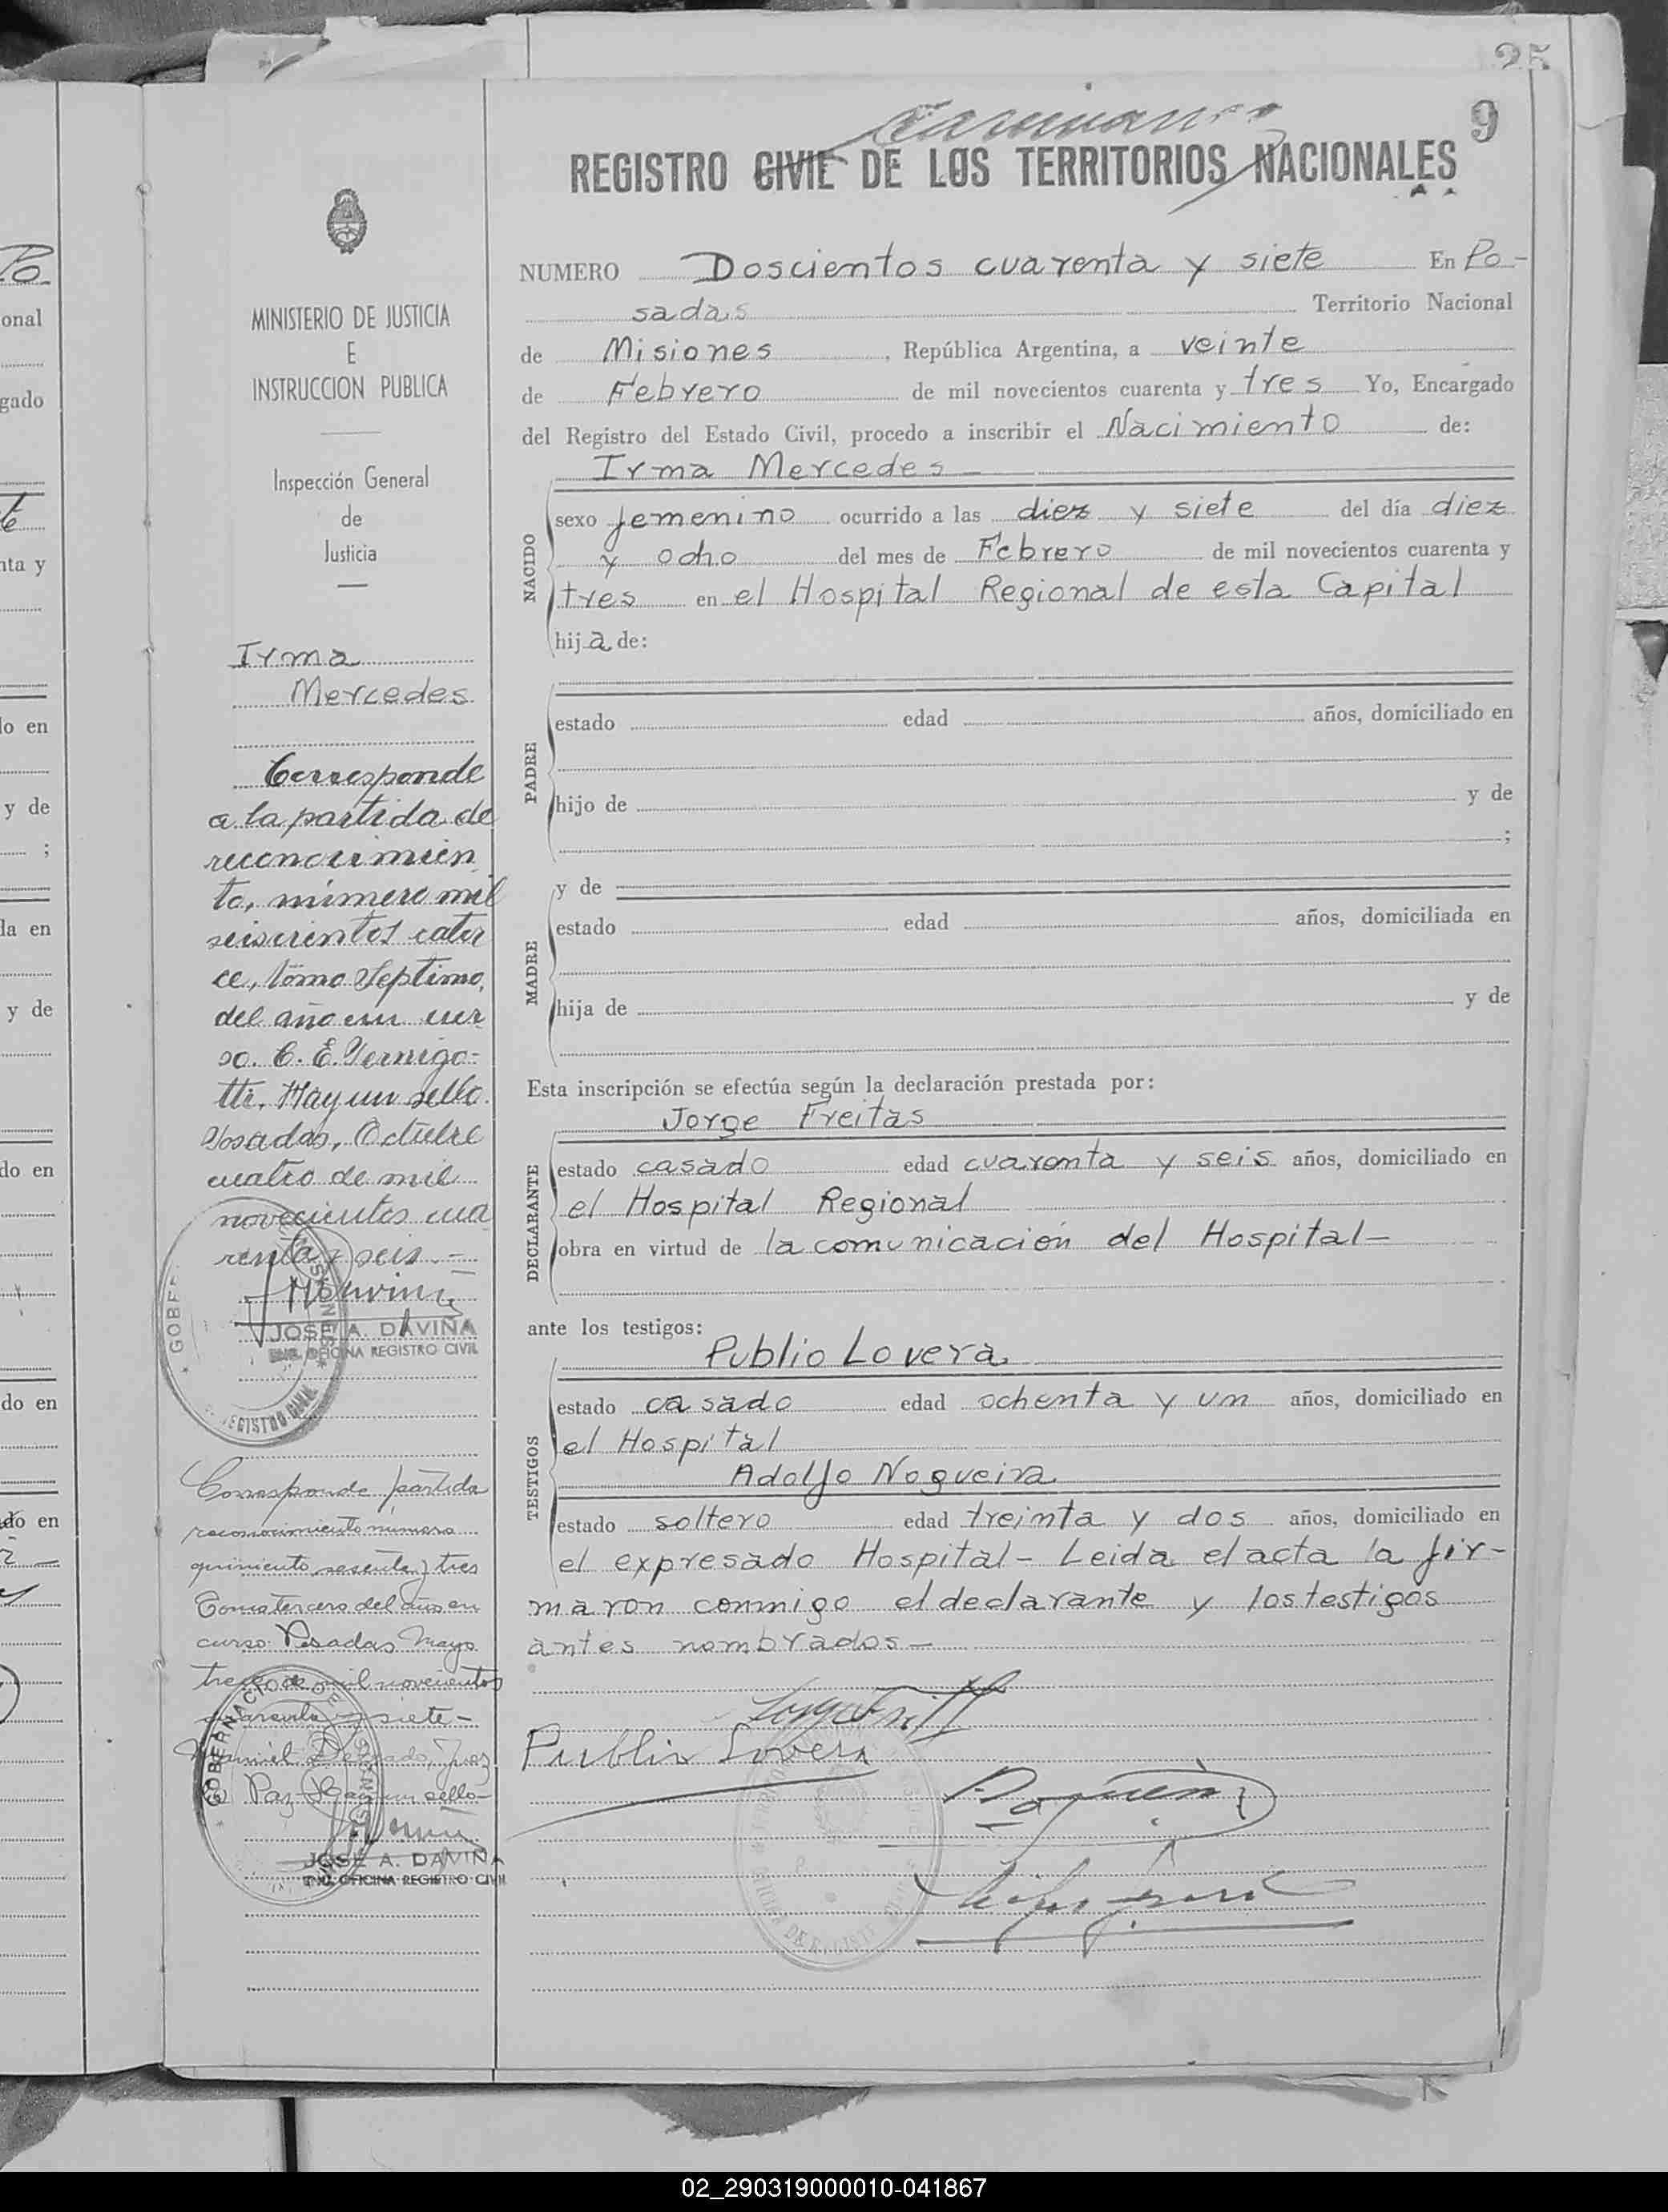 25
9
REGISTRO CIVIL DE LOS TERRITORIOS NACIONALES
MINISTERIO DE JUSTICIA
E
INSTRUCCION PUBLICA
Inspección General
de
Justicia
Irma
Mercedes
Corresponde
a la partida de
reconocimien
to, número mil
seiscientos cator
ce, tomo Septimo,
del año en cur
so. C. E. Vernigo-
tti. Hay un sello.
Posadas, Octubre
cuatro de mil
novecientos cua
renta y seis.-
JOSE A. DAVIÑA
ENC. OFICINA REGISTRO CIVIL
Corresponde partida
reconocimiento número
quiniento sesenta y tres
Tomo tercero del año en
curso Posadas Mayo
trece de mil novecientos
cuarenta y siete-
Manuel Delgado, Juez
de Paz Hay un sello-
JOSE A. DAVIÑA
ENC. OFICINA REGISTRO CIVIL
NUMERO Doscientos cuarenta y siete En Po-
sadas Territorio Nacional
de Misiones, República Argentina, a veinte
de Febrero de mil novecientos cuarenta y tres Yo, Encargado
del Registro del Estado Civil, procedo a inscribir el Nacimiento de:
Irma Mercedes-
NACIDO
sexo femenino ocurrido a las diez y siete del día diez
y ocho del mes de Febrero de mil novecientos cuarenta y
tres en el Hospital Regional de esta Capital
hija de:
PADRE
estado edad años, domiciliado en
hijo de y de
;
MADRE
y de
estado edad años, domiciliada en
hija de y de
Esta inscripción se efectúa según la declaración prestada por:
Jorge Freitas
DECLARANTE
estado casado edad cuarenta y seis años, domiciliado en
el Hospital Regional
obra en virtud de la comunicación del Hospital-
ante los testigos:
Publio Lovera
TESTIGOS
estado casado edad ochenta y un años, domiciliado en
el Hospital
Adolfo Nogueira
estado soltero edad treinta y dos años, domiciliado en
el expresado Hospital- Leida el acta la fir-
maron conmigo el declarante y los testigos
antes nombrados-
Publio Lovera
02_290319000010-041867